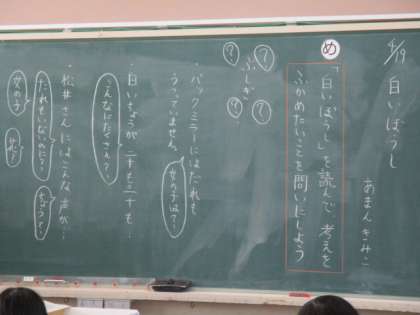 4/19
白いぼうし
あまんきみこ
め
「白いぼうし」を読んで、考えを
ふかめたいことを問いにしよう
? ? ? ?
ふしぎ
・バックミラーにはだれも
うつっていません。
女の子は?
・白いちょうが、二十も三十も・
こんなにたくさん?
・松井さんにはこんな声が…
だれもいないのに?
ちょう?
女の子